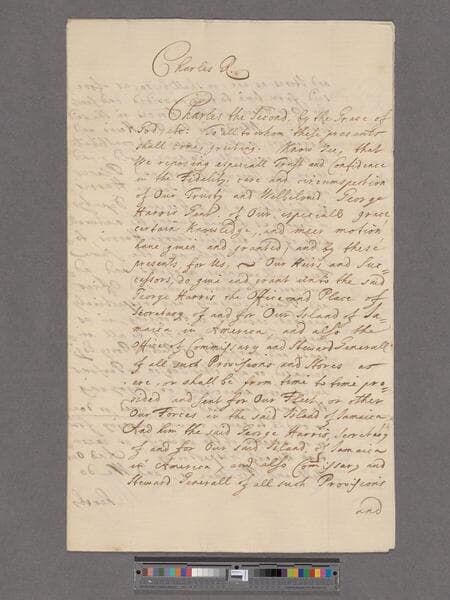 Charles R.
Charles the Second, by the Grace of
God, etc: To all to whom these presents
shall come, greeting. Know Yee, that
We reposing especiall Trust and Confidence
in the Fidelity, care and circumspection
of Our Trusty and Welbeloved George
Harris Gent. of Our especiall grace
certain knowledge, and meer motion
have given and granted, and by these
presents, for Us, Our Heirs and Suc=
cessors, do give and grant unto the said
George Harris the Office and Place of
Secretary of and for Our Island of Ja=
maica in America and also the
Office of Commissary and Steward Generall
of all such Provisions and Stores as
are, or shall be from time to time pro=
vided and sent for Our Fleet, or other
Our Forces in the said Island of Jamaica
And him the said George Harris, Secretary
of and for Our said Island of Jamaica
in America, and also Commissary and
Steward Generall of all such Provisions
and